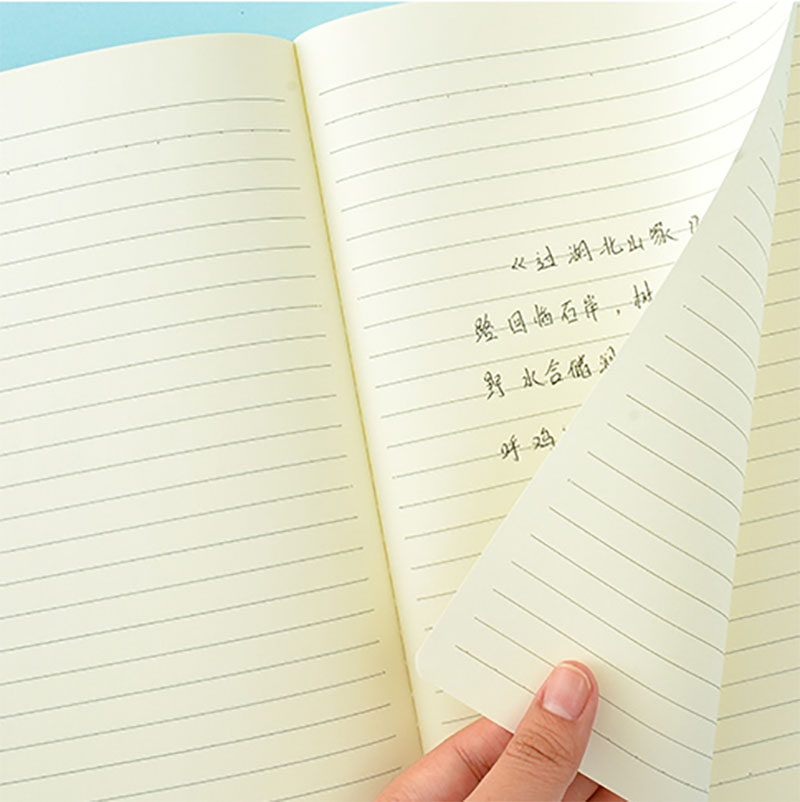 《过湖北山家
路回临石岸，树
野水合储
呼鸡